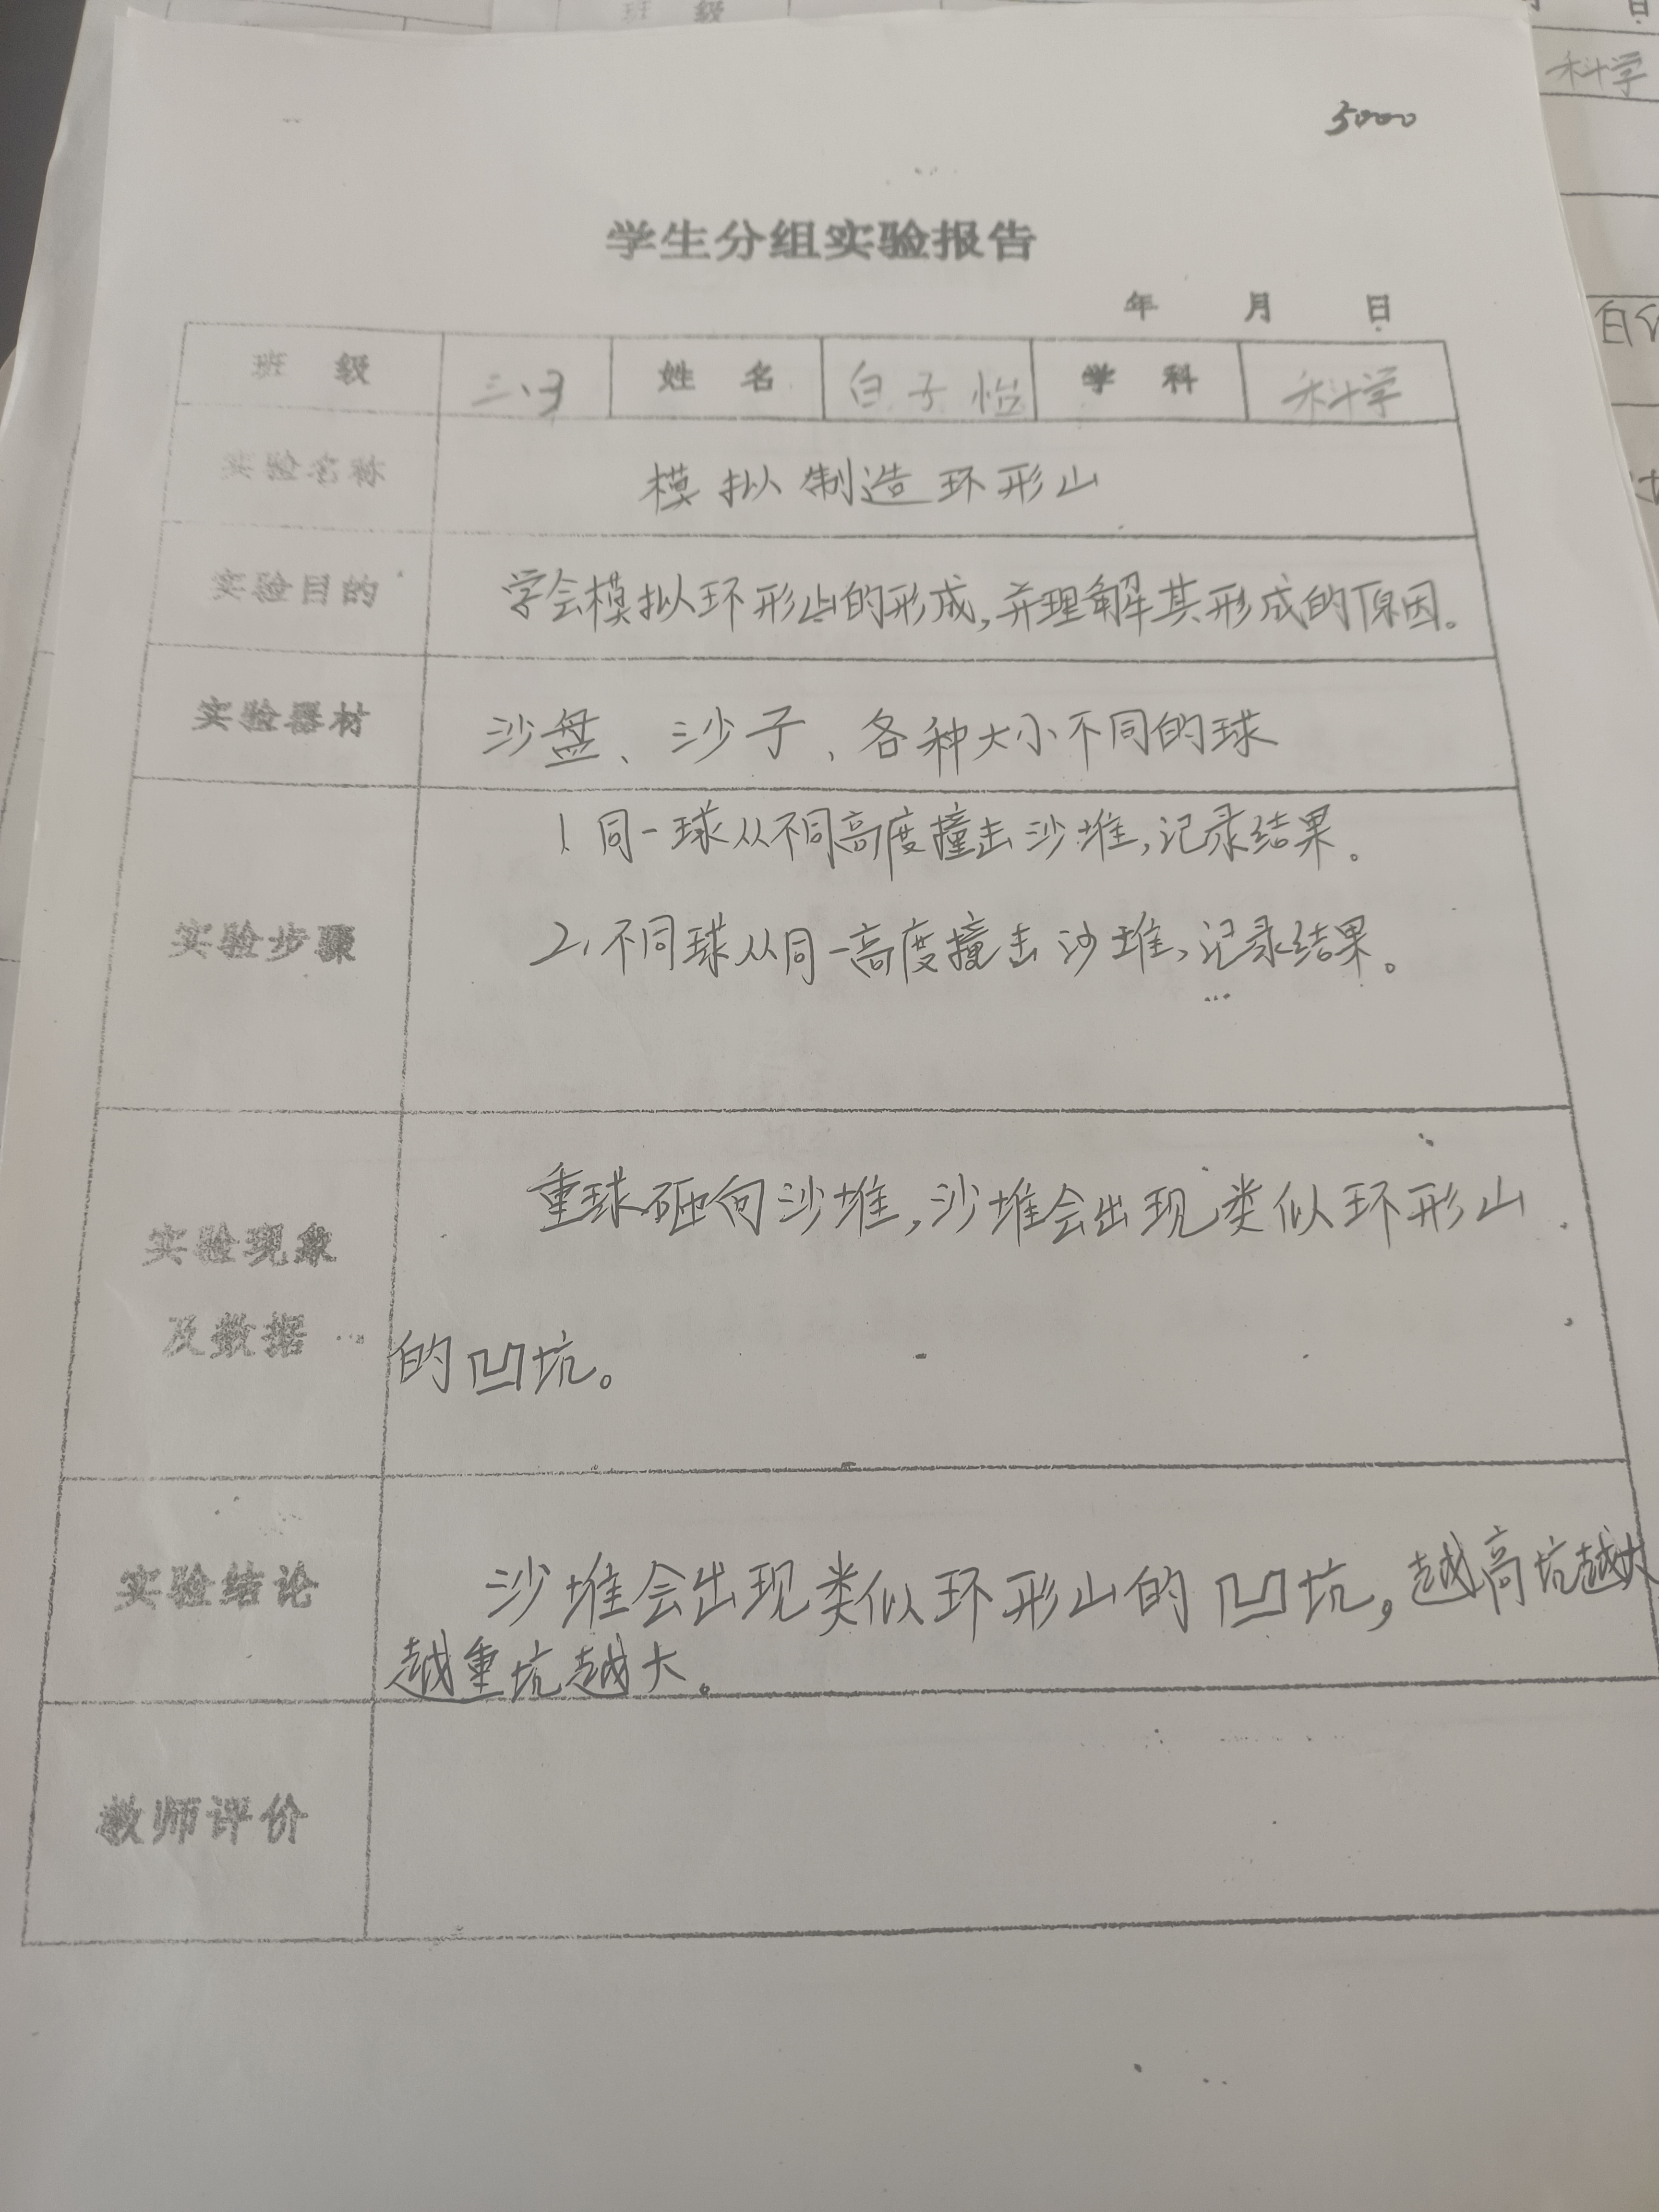 班 级
月 日
科学
5000
学生分组实验报告
年 月 日
班 级 姓 名 白子怡 学 科 科学
实验名称 模拟制造环形山
实验目的 学会模拟环形山的形成,并理解其形成的原因。
实验器材 沙盘、沙子、各种大小不同的球
1 同一球从不同高度撞击沙堆,记录结果。
实验步骤
2、不同球从同一高度撞击沙堆,记录结果。
重球砸向沙堆,沙堆会出现类似环形山
实验现象
及数据
的凹坑。
实验结论 沙堆会出现类似环形山的凹坑,越高坑越大
越重坑越大。
教师评价